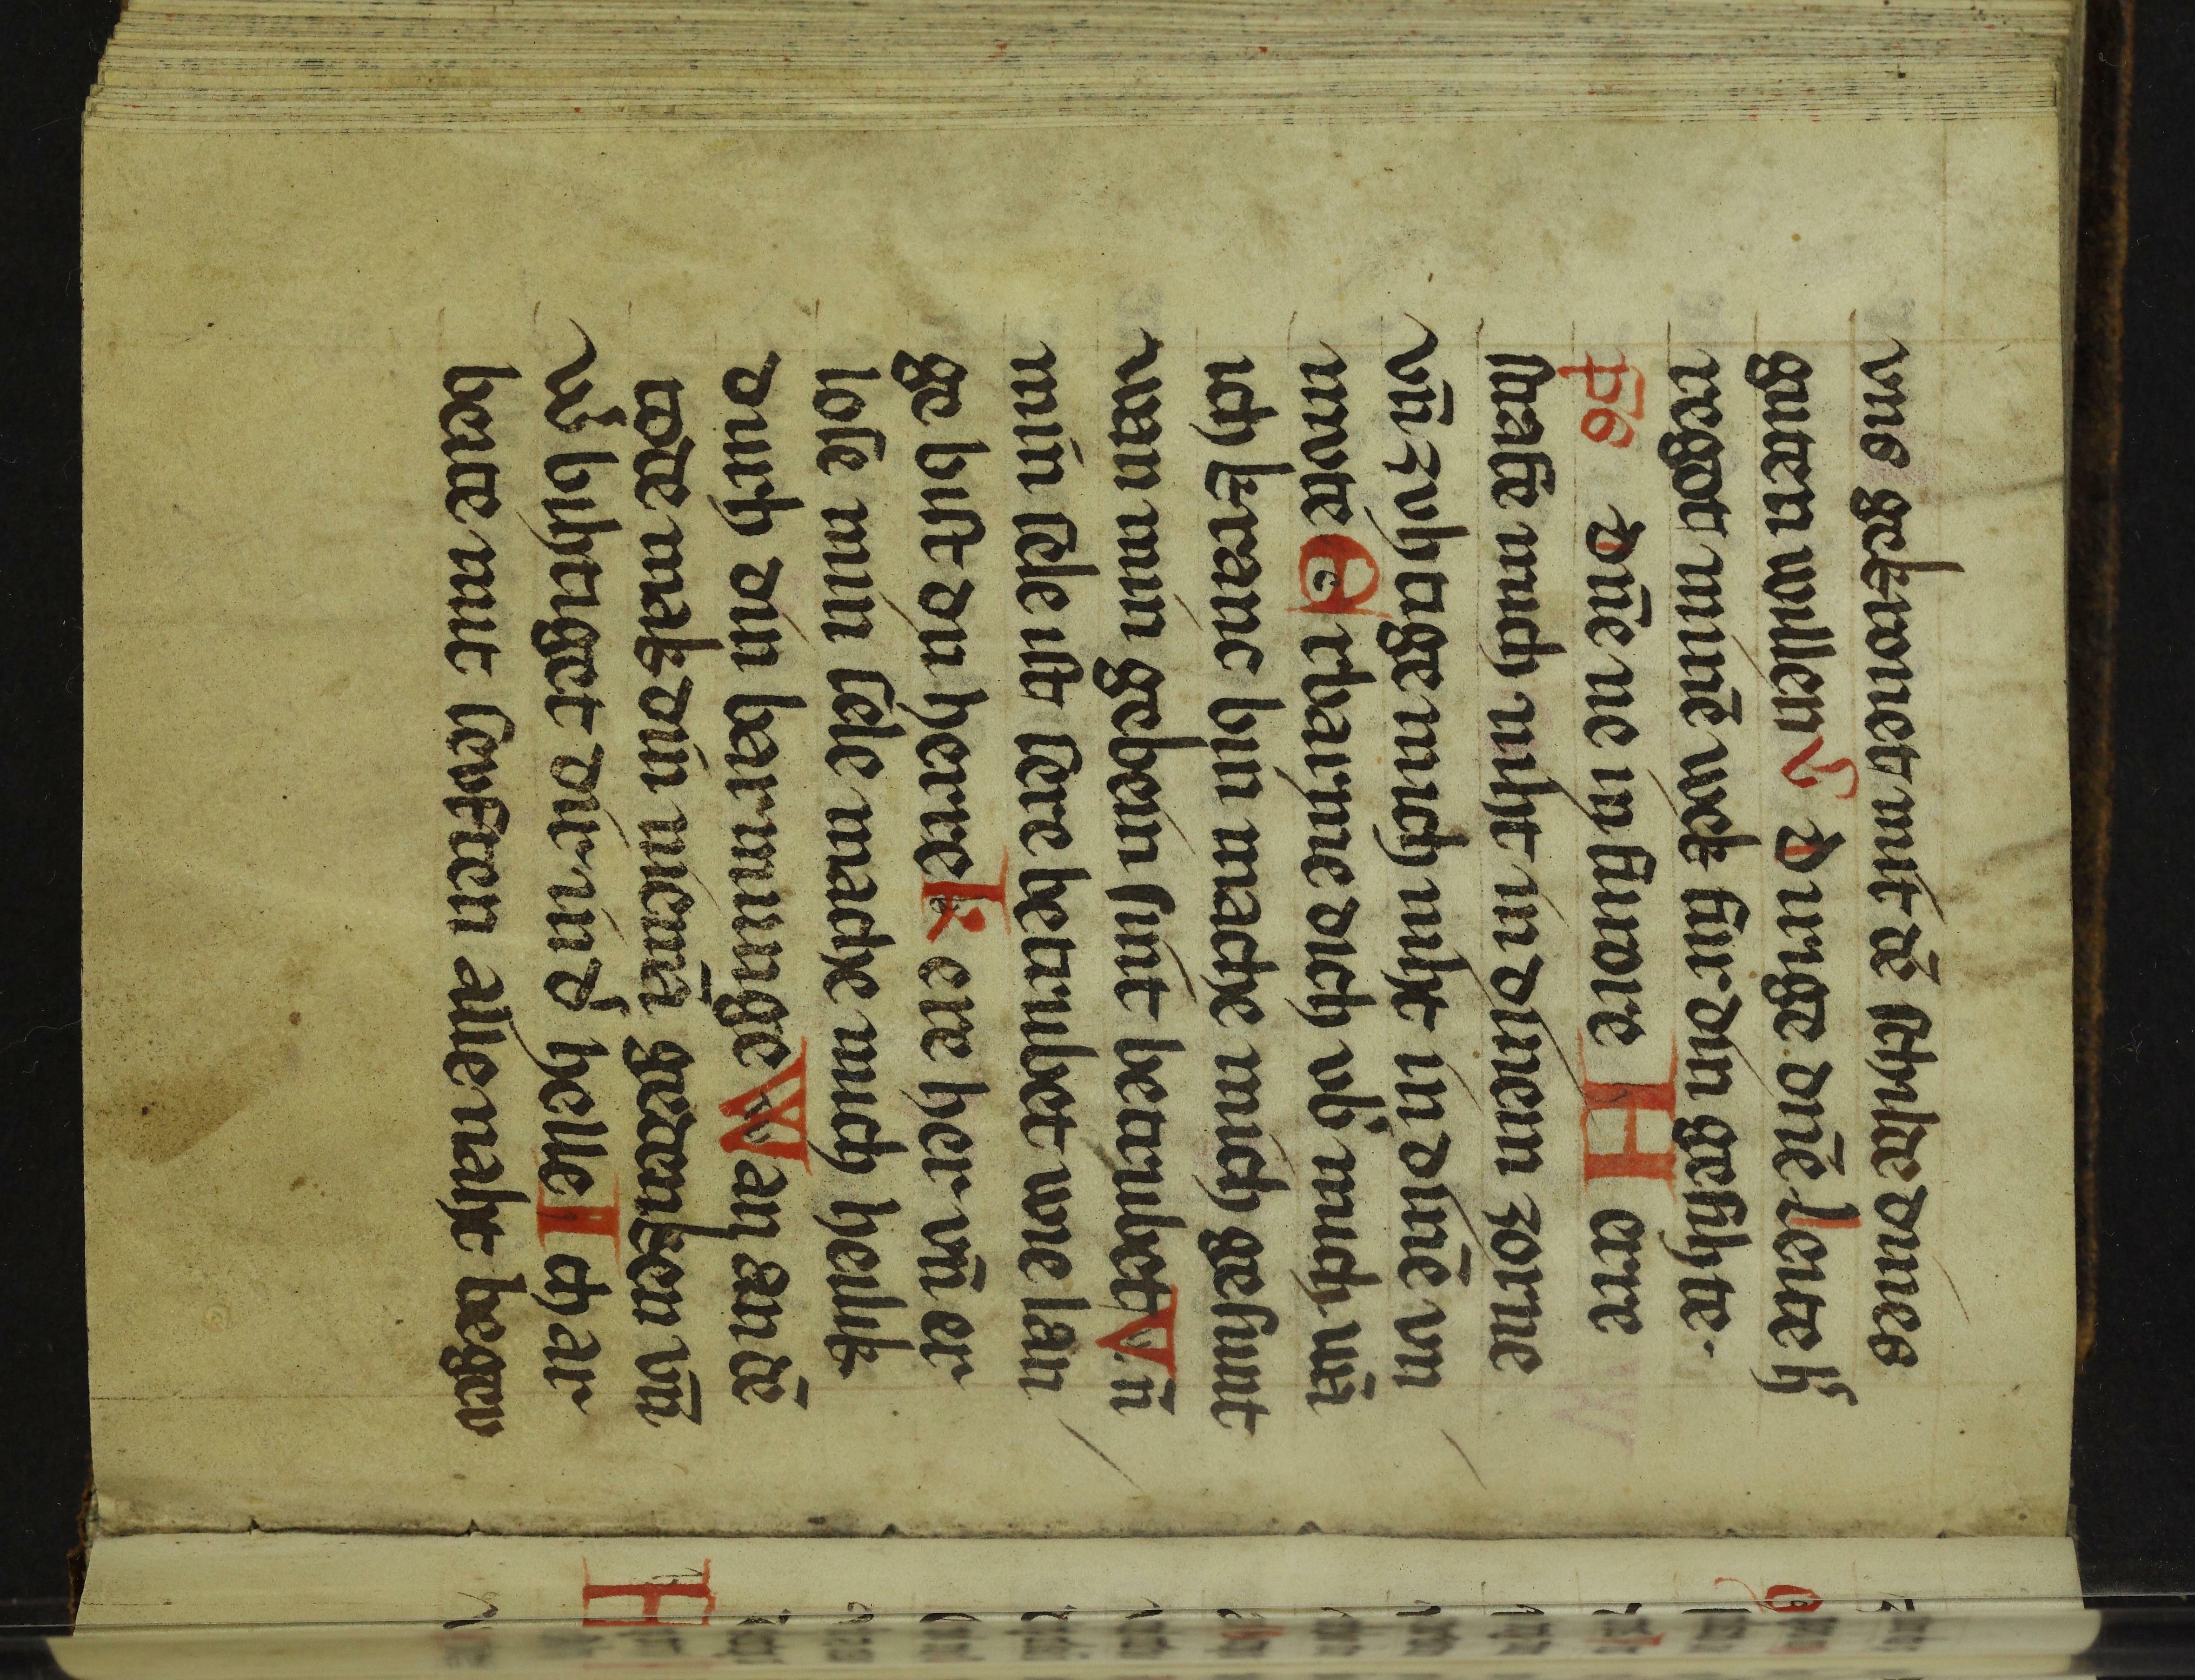 vns gekronet mit dē schilte dines
guten willen A d, vige dnē leite h͛
regot minē wek fur din gesihte.
ps Dn̄e ne in furore H erre
strafe mich niht in dinem zorne
vn̄ zvhtage mich niht in dinē vn
mvte E rbarme dich vb̓ mich wā
ich kranc bin mache mich gesunt
wan min gebein sint betrubet V n̄
min sele ist sere betrubet vne lan
ge bist du herre k ere her vn̄ er
lose min sele mache mich heilik
durch din barmunge W an an dē
tode makdin niemā gedenken vn̄
w̓ bihtiget dir in d̓ helle I ch ar
beite mit sevften alle naht begev